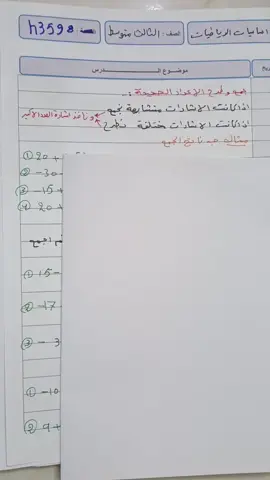 اساسيات الرياضيات
الصف: الثالث متوسط
h3598
موضوع الدرس
جمع وطرح الاعداد الصحيحة :
اذا كانت الاشارات متشابهة نجمع
اذا كانت الاشارات مختلفة نطرح
ونأخذ اشارة العدد الاكبر
مثال جد ناتج الجمع
① 20 +
② -30
③ -15 +
④ 20 +
ثم اجمع
① 15 -
② -17
③ - 3
① -10
② 9 +